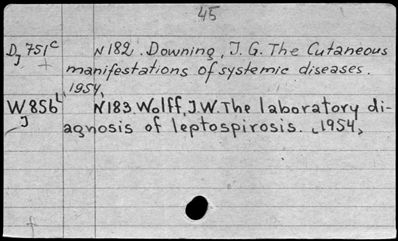 45
D 751c N182. Downing, J. G. The Cutaneous
J
manifestations of systemic diseases.
1954,
W 856 N183. Wolff, J.W. The laboratory di-
J
agnosis of leptospirosis. 1954,